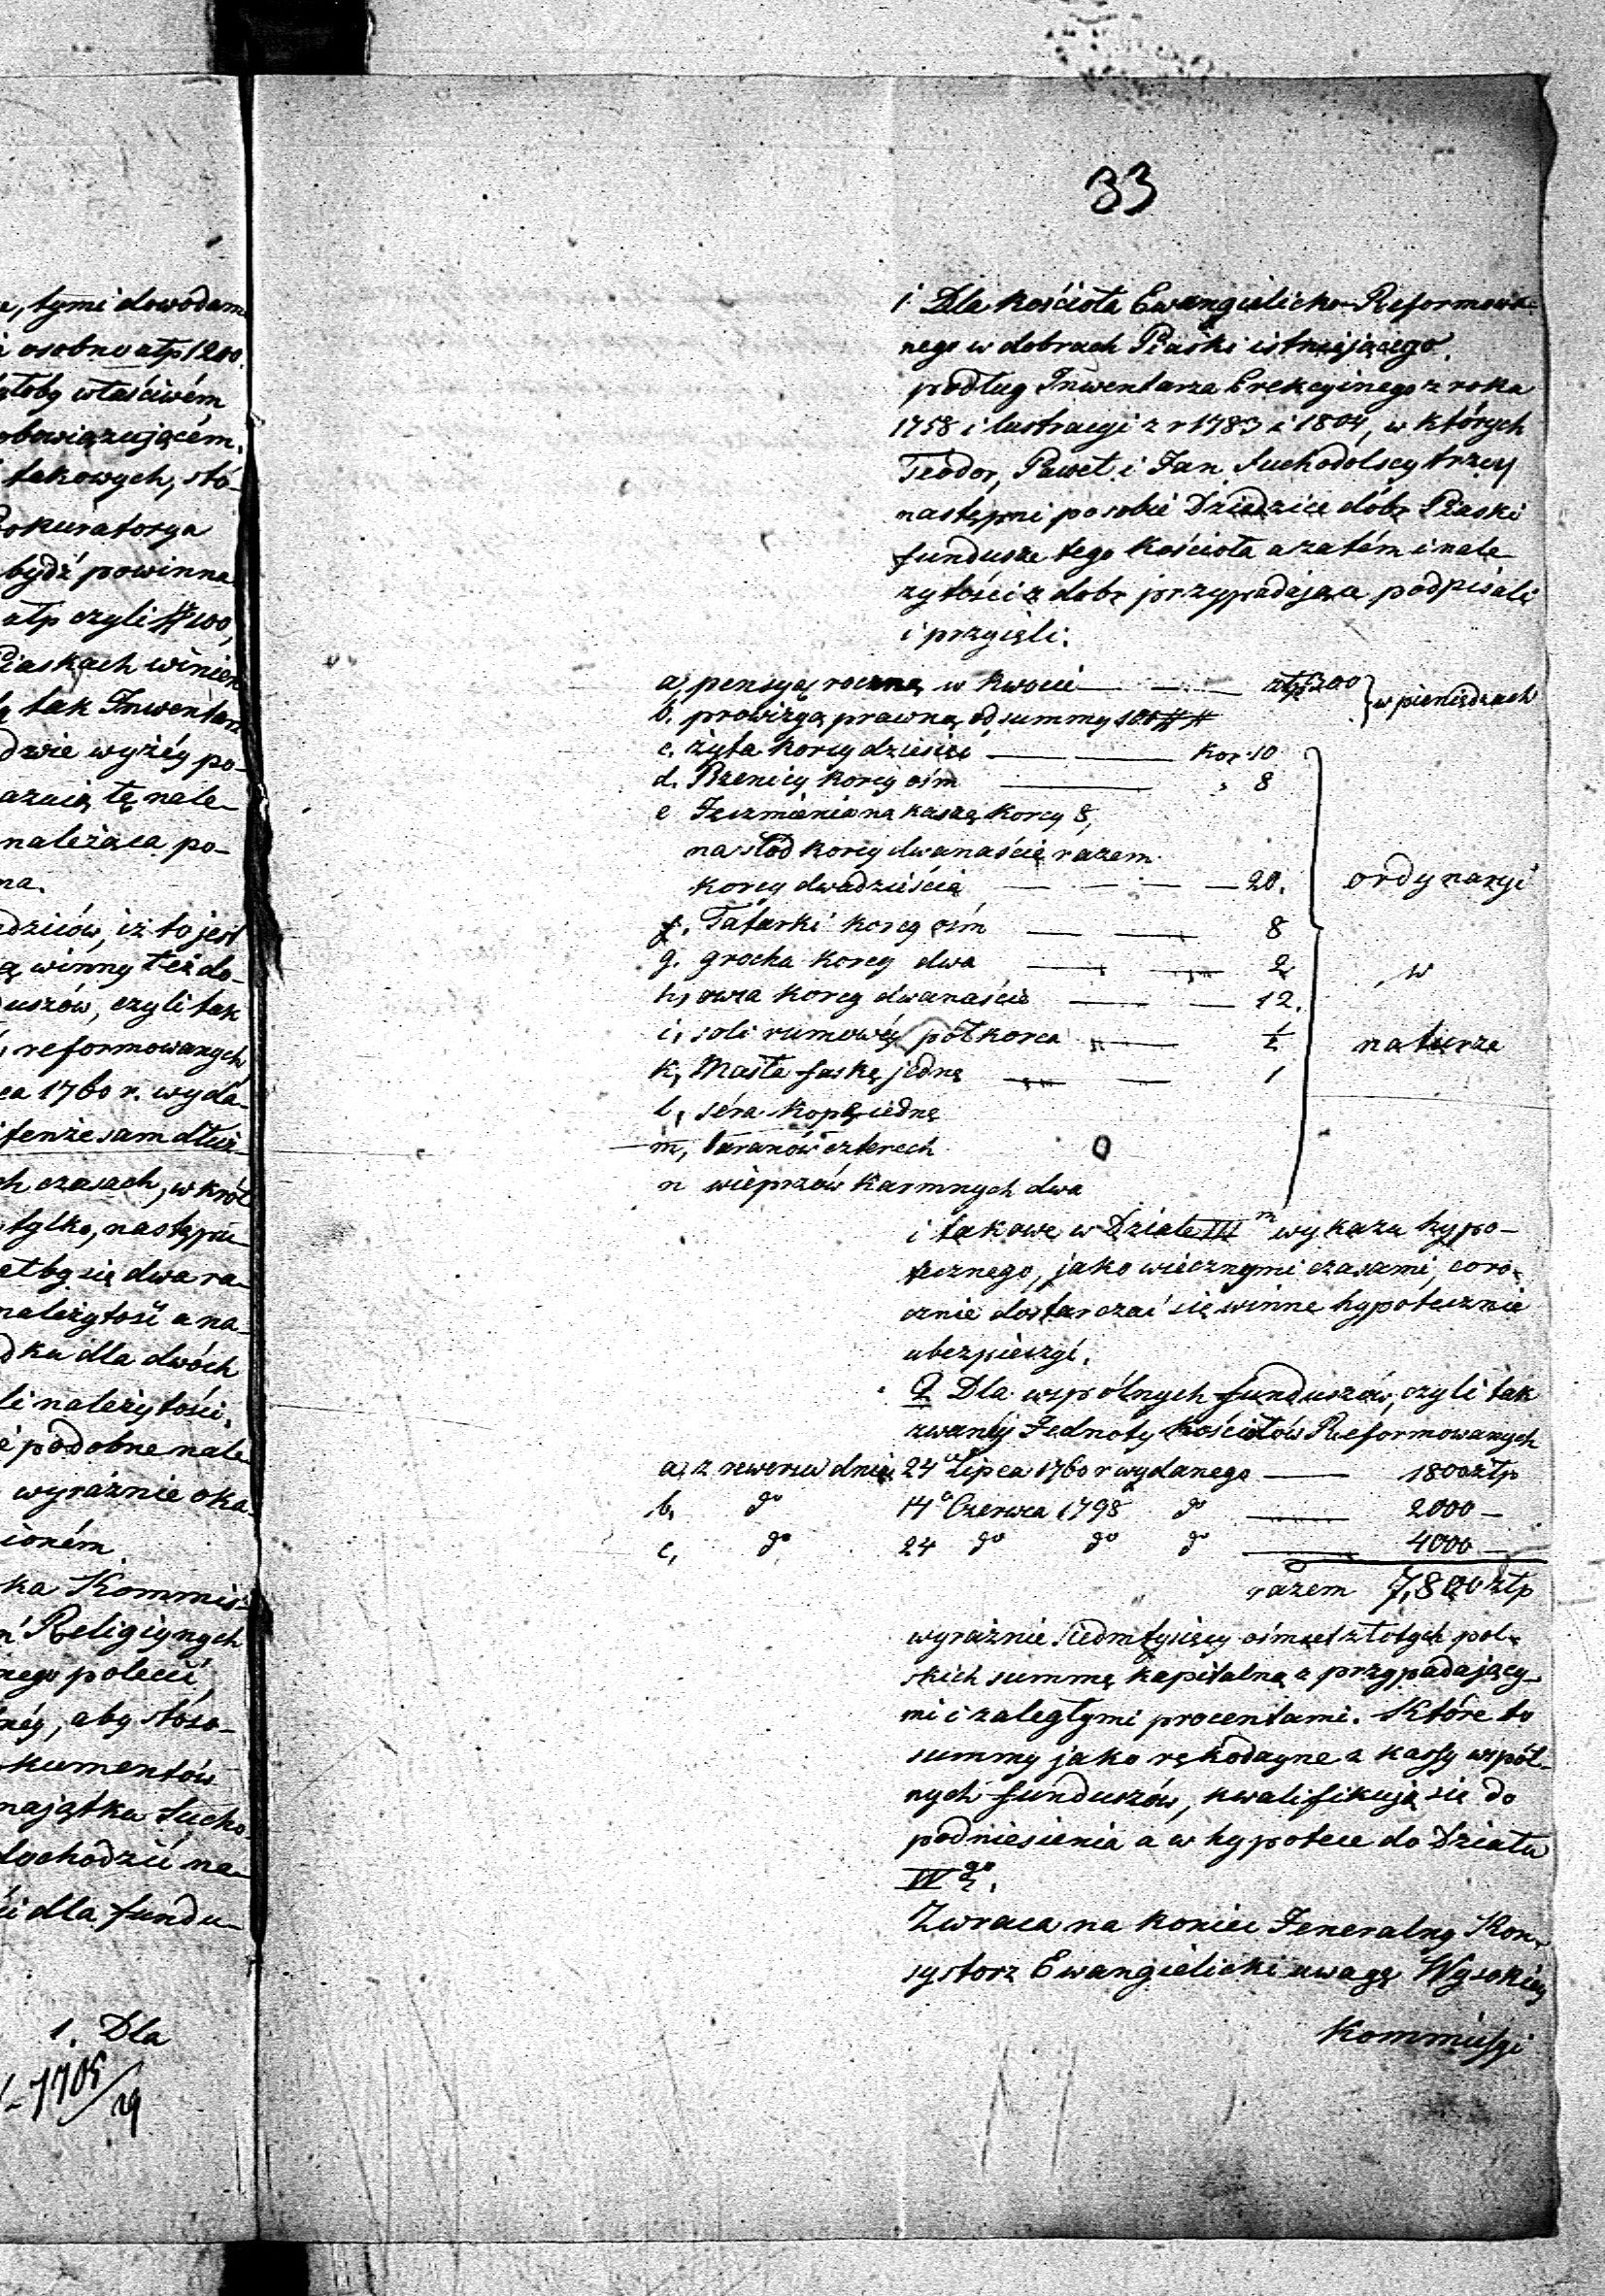 e, tymi dowodam
i osobno złp 1200.
yłoby właściwém
obowiązującém.
takowych, stó-
Prokuratorya
bydź powinna
złp czyli # 100,
Piaskach winien
ą tak Inwentarz
dwie wyżéy po-
azuią tę nale-
należąca po-
na.
edziców, iż to jest
ą winny też do-
uszów, czyli tak
reformowanych
ca 1760 r. wyda-
tenże sam dłuż-
ch czasach, w król
tylko, następu-
ałby się dwa ra-
należytość a na-
dku dla dwóch
li należytości,
i podobne nale-
wyraźnie oka-
ioném.
ka Kommis-
Religiynych
nego polecić,
néy, aby stóso-
kumentów
majątku Sucho-
dochodzić na-
i dla fundu-
1. Dla
7705/29
33
1 Dla kościoła Ewangielicko-Reformowa-
nego w dobrach Piaski istniejącego.
podług Inwentarza Erekcyinego z roku
1758 i lustracyi z r 1783 i 1804, w których
Teodor, Paweł i Jan Suchodolscy trzey
następni po sobie Dziedzice dóbr Piaski
fundusze tego kościoła a zatém i nale-
żytości z dobr przypadające podpisali
i przyięli.
a, pensyą roczną w kwocie — — złp 1200 } w pieniądzach
b. prowizyą prawną od summy 100 # #
c. żyta korcy dziesięć — — kor. 10
d. Pszenicy korcy ośm — „ 8
e Jęczmienia na kaszę korcy 8,
na słod korcy dwanaście razem
korcy dwadzieścia — — — — 20. ordynaryi
f. Tatarki korcy ośm — — 8
g. grochu korcy dwa — — 2 w
h, owsa korcy dwanaście — — 12.
i, soli rumowéy pół korca — ½ naturze
k, Masła faskę jedną — — 1
l, séra kopę iedną
m, baranów czterech
n wieprzów karmnych dwa
i takowe w Dziale III m wykazu hypo-
tecznego, jako wiecznymi czasami, coro-
cznie dostarczać się winne hypotecznie
ubezpieczyć.
2 Dla wspólnych funduszów, czyli tak
zwanéy Jednoty kościołów Reformowanych
a, z rewersu dnia 24 Lipca 1760 r wydanego — 1800 złp
b, do 14 Czerwca 1798 do — 2000 —
c, do 24 do do do — 4000 —
razem 7,800 złp
wyraźnie siedmtysięcy ośmset złotych pol-
skich summę kapitalną z przypadający-
mi i zaległymi procentami. Które to
summy jako rękodayne z kassy wspól-
nych funduszów, kwalifikują się do
podniesienia a w hypotece do Działu
IV go.
Zwraca na koniec Jeneralny Kon-
systorz Ewangielicki uwagę Wysokiéy
Kommissyi